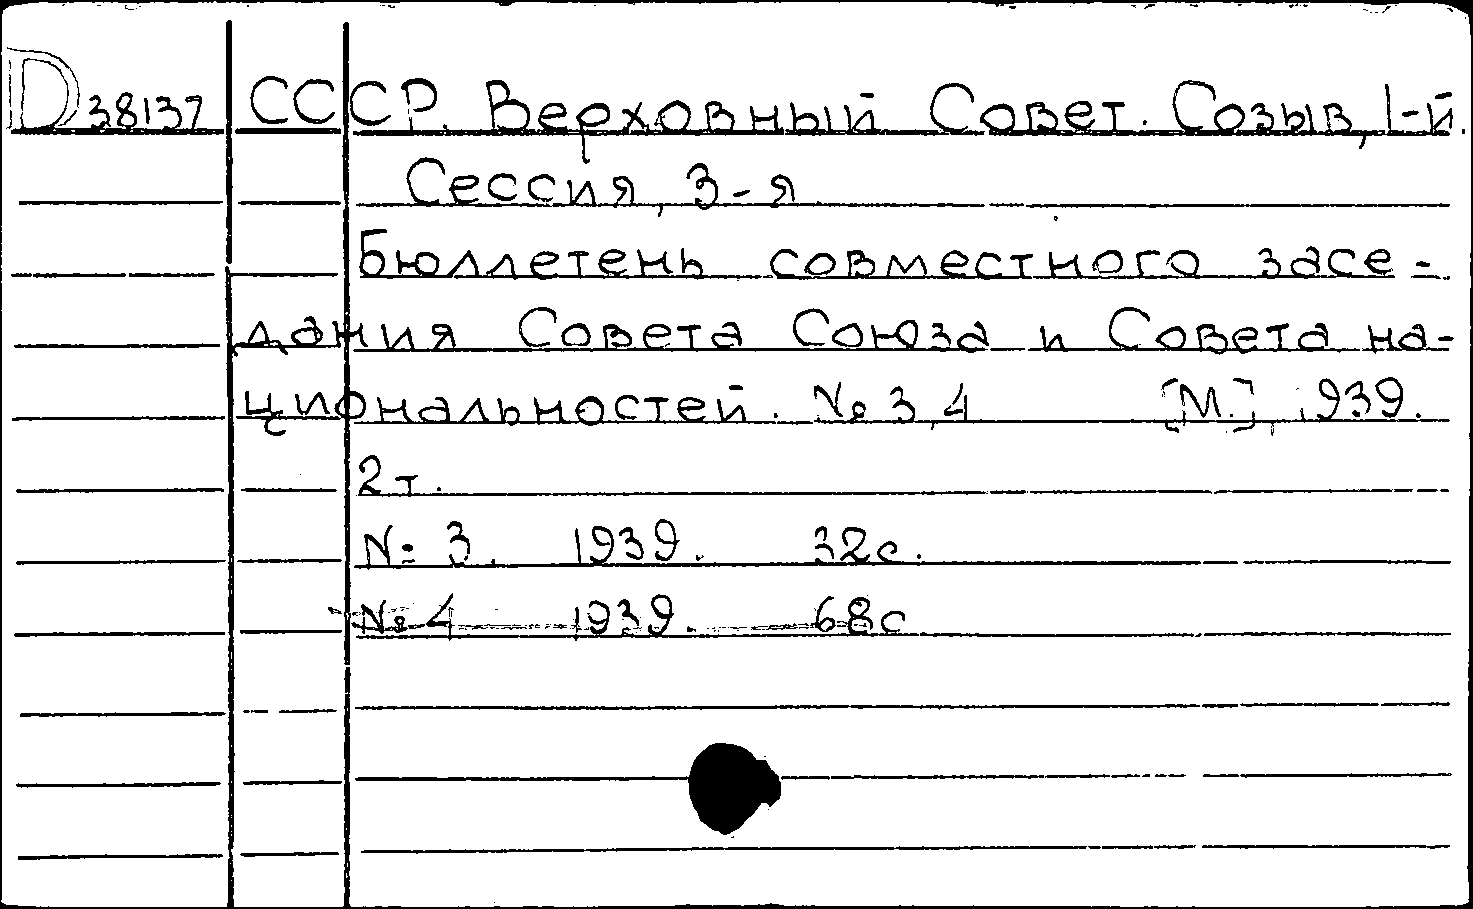 D 38137 СССР. Верховный Совет. Созыв, 1-й.
Сессия, 3-я
Бюллетень совместного засе-
дания Совета Союза и Совета на-
циональностей. № 3, 4 [М.], 1939.
2 т.
№ 3. 1939. 32 с.
№ 4 1939. 68 с